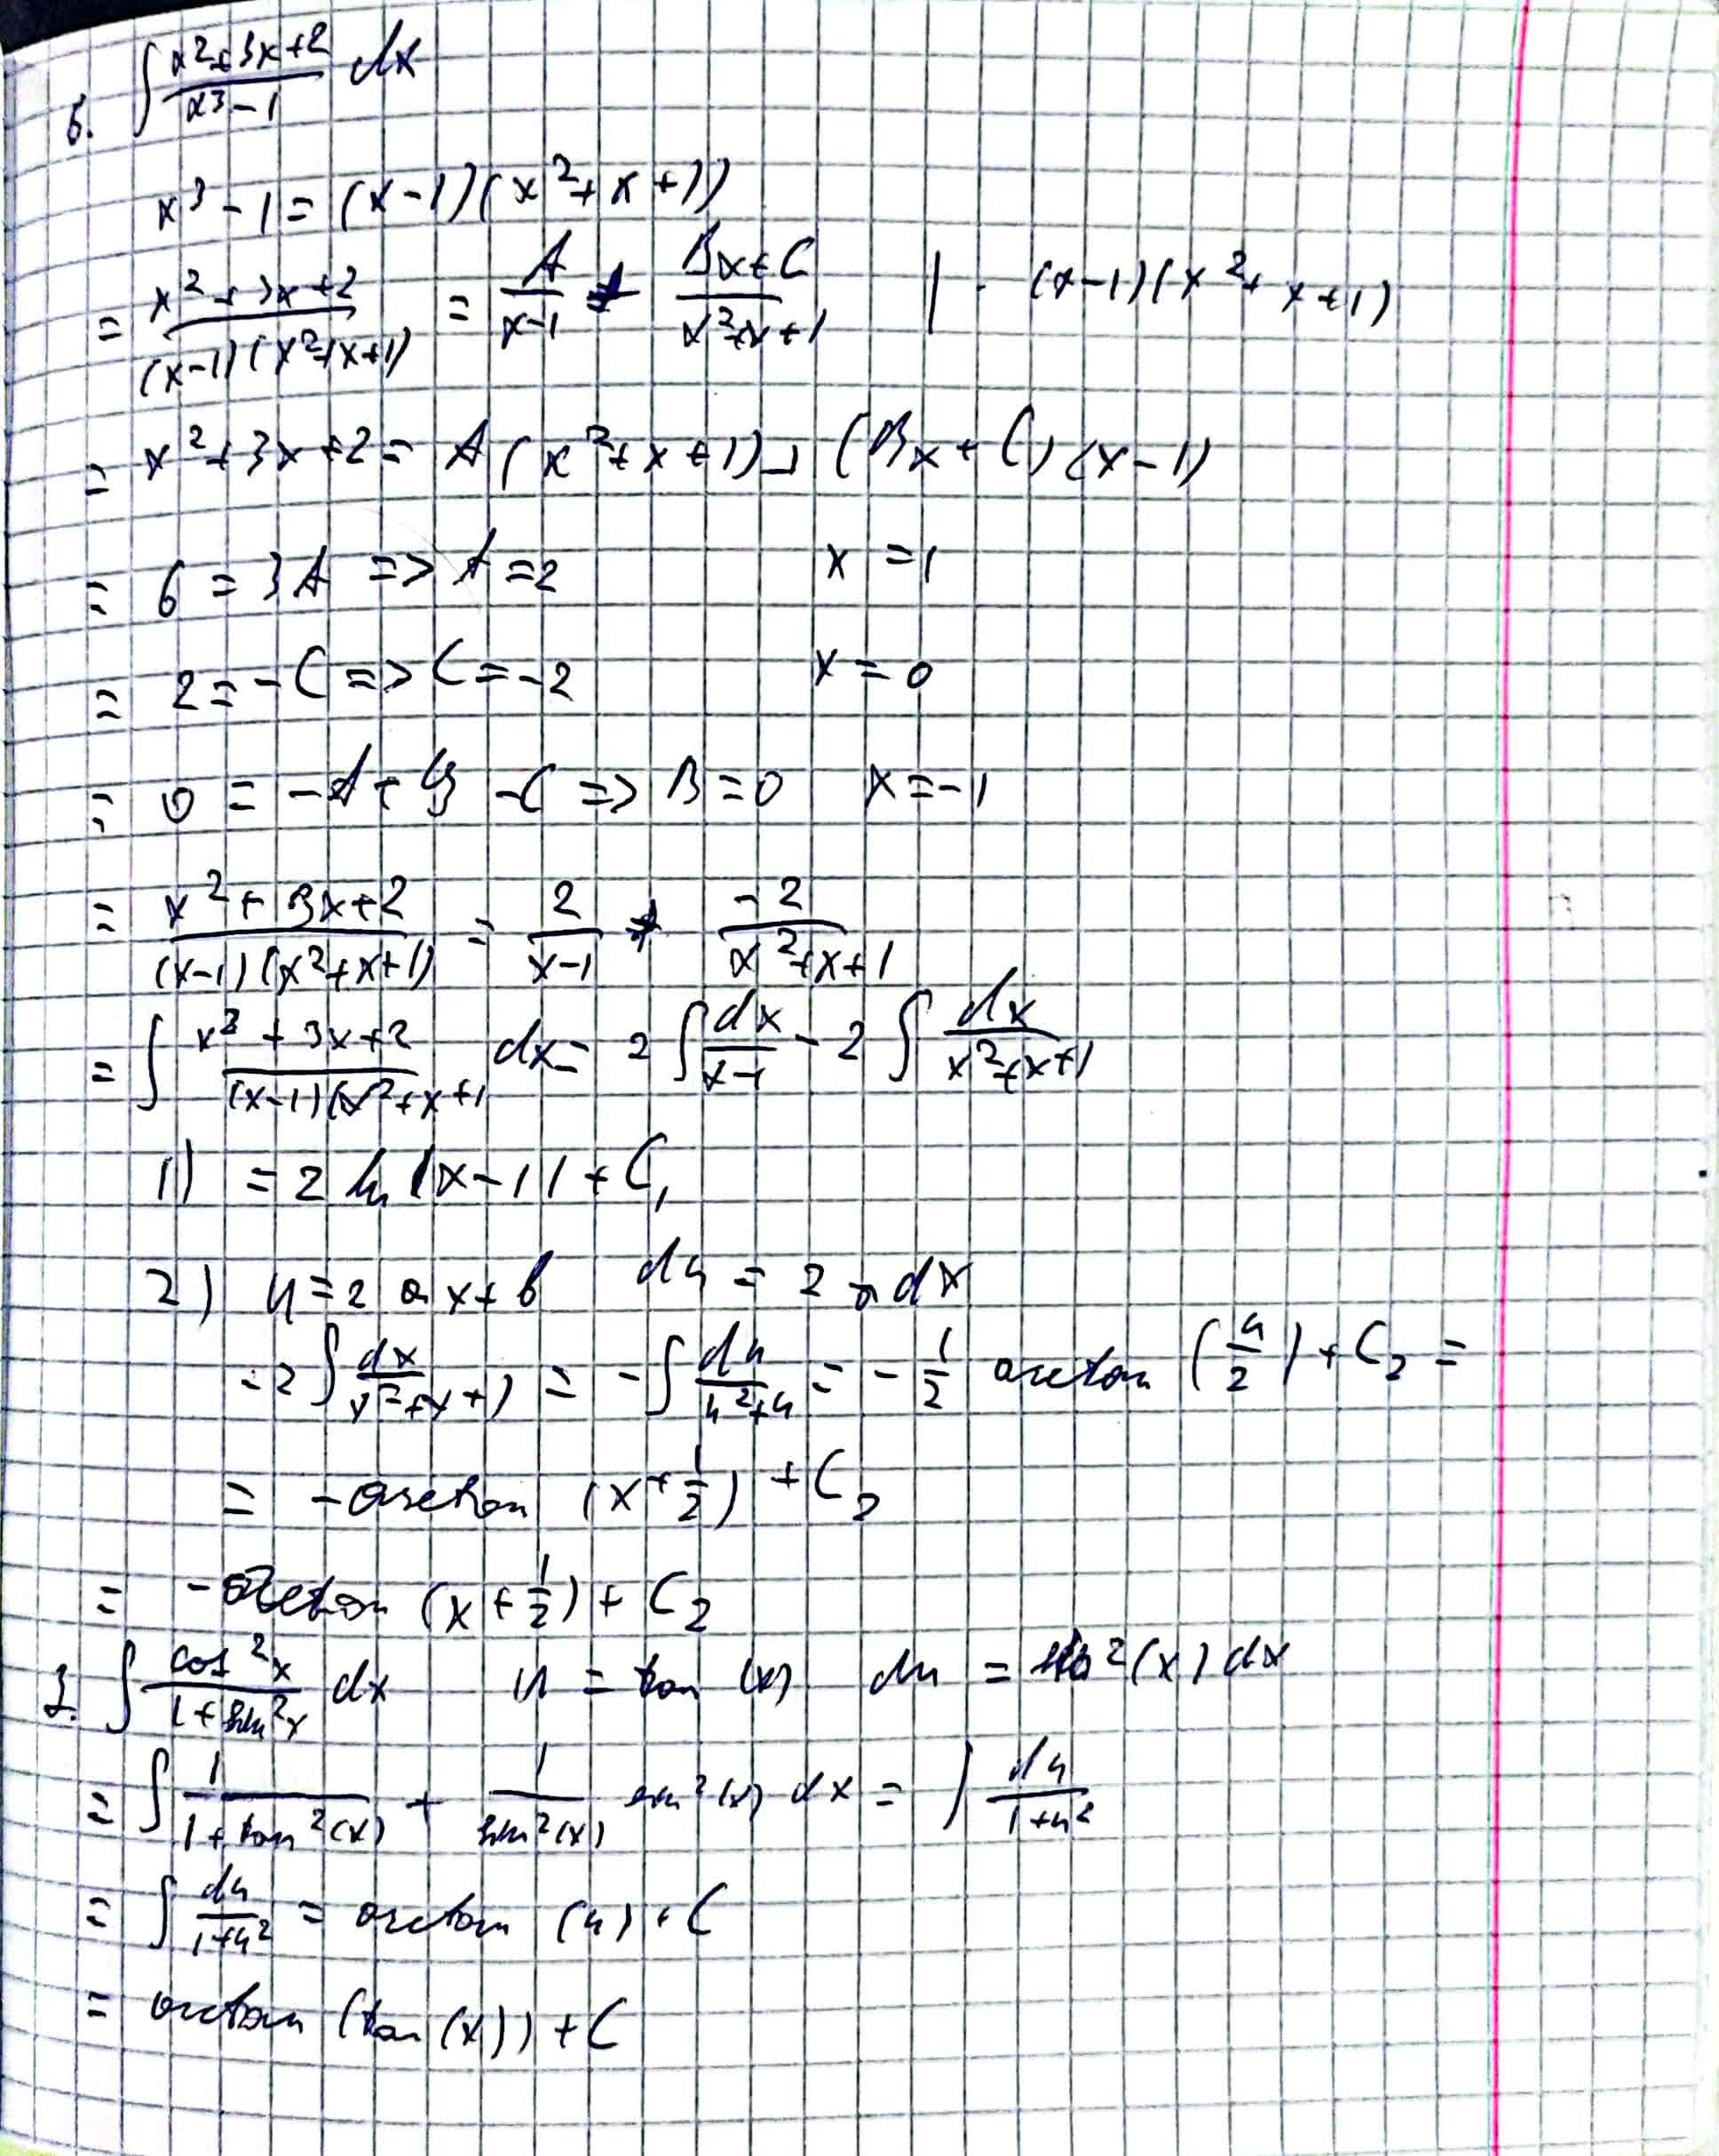 6. ∫ (x²+3x+2)/(x³-1) dx
x³ - 1 = (x-1)(x²+x+1)
= (x²+3x+2)/((x-1)(x²+x+1)) = A/(x-1) + (Bx+C)/(x²+x+1) | · (x-1)(x²+x+1)
= x²+3x+2 = A(x²+x+1) + (Bx+C)(x-1)
= 6 = 3A => A = 2 x = 1
= 2 = -C => C = -2 x = 0
= 0 = -A + B - C => B = 0 x = -1
= (x²+3x+2)/((x-1)(x²+x+1)) = 2/(x-1) + (-2)/(x²+x+1)
= ∫ (x²+3x+2)/((x-1)(x²+x+1) dx = 2 ∫ dx/(x-1) - 2 ∫ dx/(x²+x+1)
1) = 2 ln |x-1| + C₁
2) u = 2ax+b du = 2a dx
-2 ∫ dx/(x²+x+1) = - ∫ du/(u²+4) = - 1/2 arctan (u/2) + C₂ =
= -arctan (x+1/2) + C₂
= -arctan (x+1/2) + C₂
∫ cos²x/(1+sin²x) dx u = tan (x) du = ²(x) dx
= ∫ 1/(1+tan²(x)) + 1/sin²(x) sin²(x) dx = ∫ du/(1+u²)
= ∫ du/(1+u²) = arctan (u) + C
= arctan (tan(x)) + C